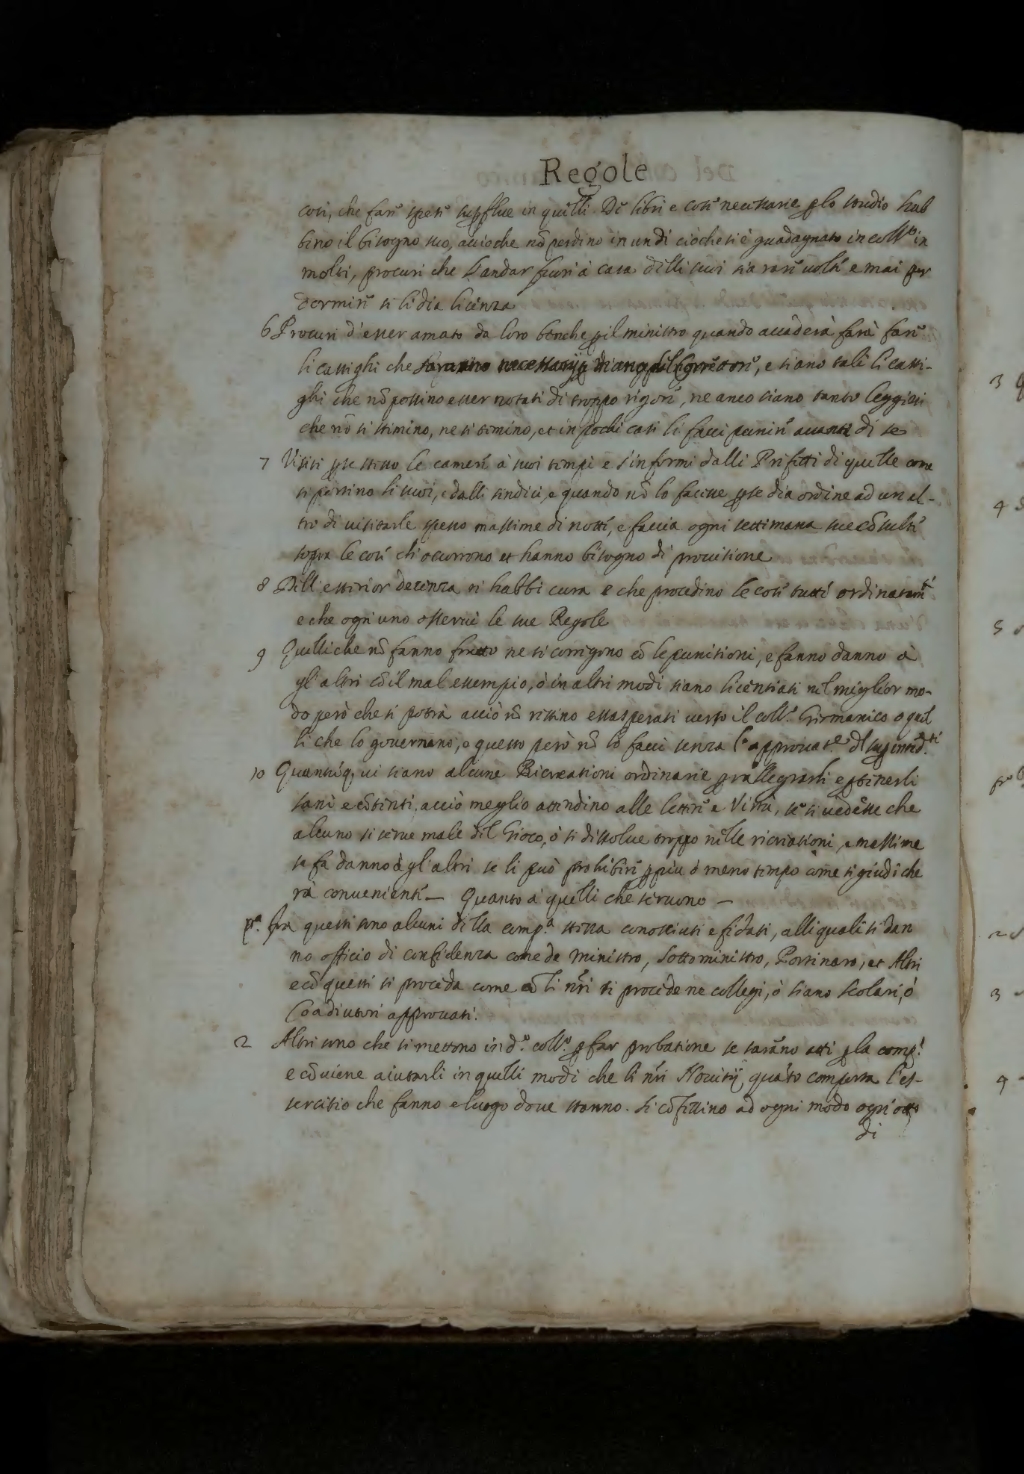 Regole
così, che farsi spese sup̱flue in quelli. De libri e cose necessarie ꝑ lo studio hab
bino il bisogno suo, acioche nõ perdino in un dì cioche si è guadagnato in coll.º in
molti, procuri che l'andar fuori à casa delli suoi sia rare volte e mai per
dormire si li dia licenza
6 Procuri d'esser amato da loro benche ꝑ il ministro quando accaderà farà fare
li castighi che saranno necessarij, e siano tali li casti-
ghi che nõ possino esser notati di troppo rigore, ne anco siano tanto leggieri
che nõ si stimino, ne si temino, et in pochi casi li facci punire avanti di se
7 Visiti ꝑ se stesso le camere à suoi tempi e s'informi dalli Prefetti di quelle come
si portino li suoi, e dalli sindici, e quando nõ lo facesse ꝑ se dia ordine ad un al-
tro di visitarle spesso massime di notte, e faccia ogni settimana sue cõsulte
sopra le cose ch'occorrono et hanno bisogno di provisione
8 Dell'esterior decenza si habbi cura e che procedino le cose tutte ordinatamte
e che ogn'uno osservi le sue Regole
9 Quelli che nõ fanno frutto ne si corrigono cõ le punitioni, e fanno danno à
gl'altri cõ il mal essempio, ò in altri modi siano licentiati nel miglior mo-
do però che si potrà acciò nõ restino essasperati verso il coll.º Germanico o quel
li che lo governano, e questo però nõ lo facci senza l'approvat.e del sup̱intẽd.te
10 Quantũq, vi siano alcune Ricreationi ordinarie ꝑ rallegrarli e ꝑ tenerli
sani e cõtenti, acciò meglio attendino alle lettere e Virtù, se si vedesse che
alcuno si serve male del Gioco, ò si dissolve troppo nelle ricreationi, e massime
se fa danno à gl'altri se li può prohibire ꝑ più ò meno tempo come si giudiche
rà conveniente — Quanto à quelli che servono —
pº. fra questi sono alcuni della comp.ª nostra conosciuti e fidati, alli quali si dan
no officio di confidenza come de ministro, sottoministro, Portinaro, et Altri
e cõ questi si proceda come cõ li nři si procede ne collegi, ò siano scolari, ò
Coadiutori approvati.
2 Altri sono che si mettono in dº. collº. ꝑ far probatione se sarãno atti ꝑ la comp.ª
e cõviene aiutarli in quelli modi che li nři Novitij, quãto comporta l'es-
sercitio che fanno e luogo dove stanno. Si cõfessino ad ogni modo ogn'otto
di